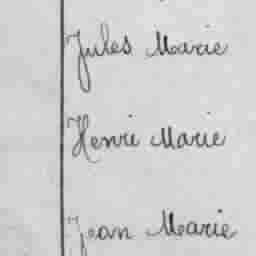 Jules Marie
Henri Marie
Jean Marie